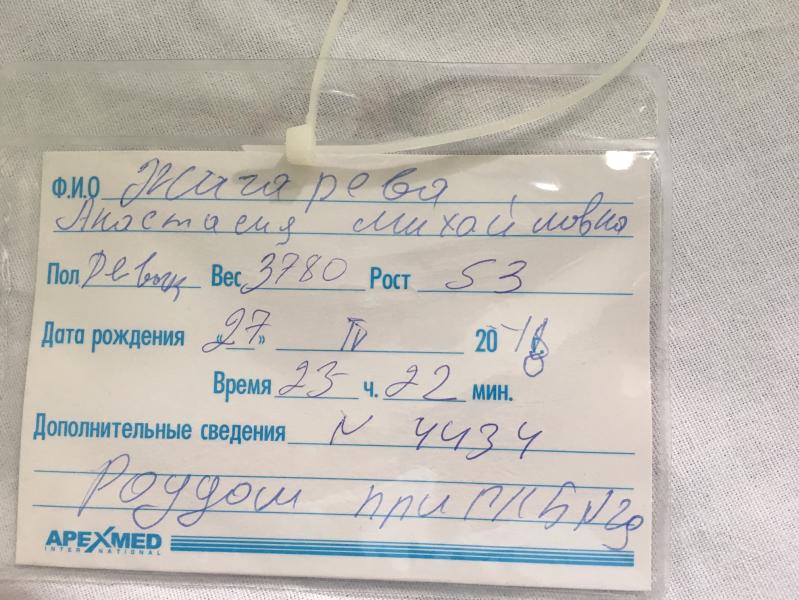 Ф.И.О Жигарева
Анастасия Михайловна
Пол Девочк Вес 3780 Рост 53
Дата рождения «27» IV 2018 г.
Время 23 ч. 22 мин.
Дополнительные сведения N 4434
Роддом при ГКБ N29
APEXMED
INTERNATIONAL